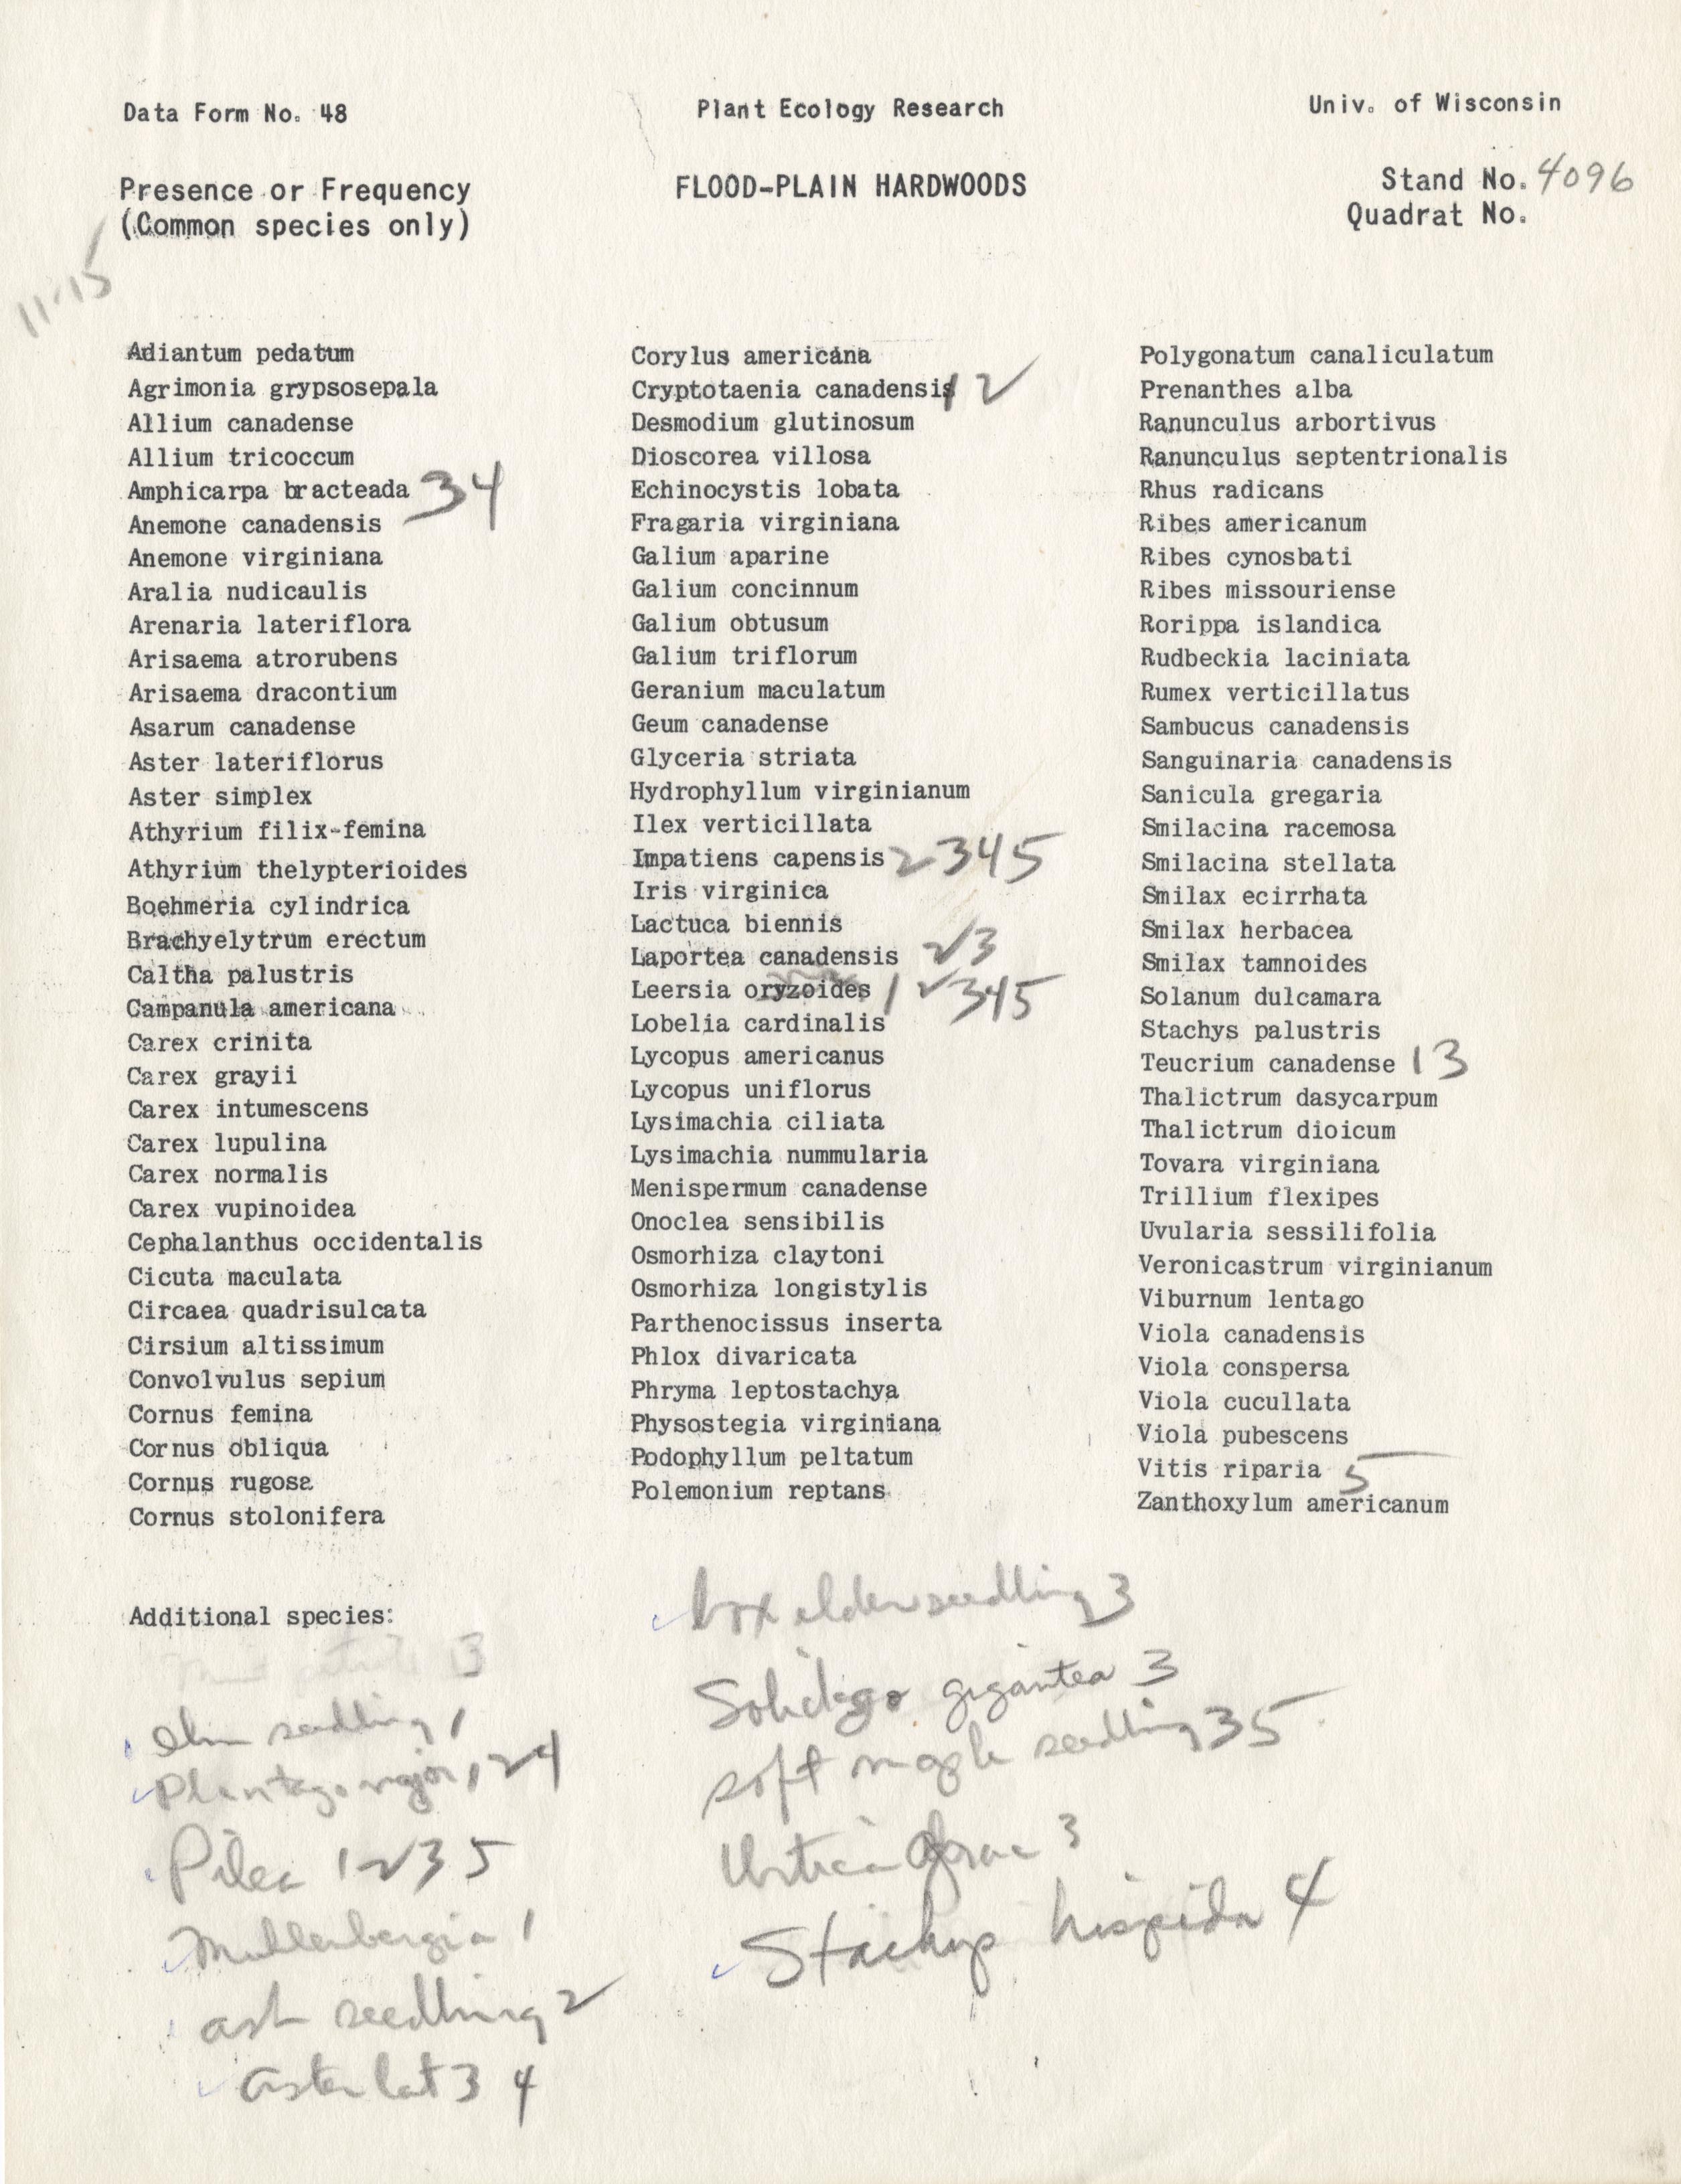 Data Form No. 48
Plant Ecology Research
Univ. of Wisconsin
Presence or Frequency
(Common species only)
FLOOD-PLAIN HARDWOODS
Stand No. 4096
Quadrat No.
11-15
Adiantum pedatum
Agrimonia grypsosepala
Allium canadense
Allium tricoccum
Amphicarpa bracteada 3 4
Anemone canadensis
Anemone virginiana
Aralia nudicaulis
Arenaria lateriflora
Arisaema atrorubens
Arisaema dracontium
Asarum canadense
Aster lateriflorus
Aster simplex
Athyrium filix-femina
Athyrium thelypterioides
Boehmeria cylindrica
Brachyelytrum erectum
Caltha palustris
Campanula americana
Carex crinita
Carex grayii
Carex intumescens
Carex lupulina
Carex normalis
Carex vupinoidea
Cephalanthus occidentalis
Cicuta maculata
Circaea quadrisulcata
Cirsium altissimum
Convolvulus sepium
Cornus femina
Cornus obliqua
Cornus rugosa
Cornus stolonifera
Corylus americana
Cryptotaenia canadensis 1 2
Desmodium glutinosum
Dioscorea villosa
Echinocystis lobata
Fragaria virginiana
Galium aparine
Galium concinnum
Galium obtusum
Galium triflorum
Geranium maculatum
Geum canadense
Glyceria striata
Hydrophyllum virginianum
Ilex verticillata
Impatiens capensis 2 3 4 5
Iris virginica
Lactuca biennis
Laportea canadensis 2 3
Leersia oryzoides 1 2 3 4 5
Lobelia cardinalis
Lycopus americanus
Lycopus uniflorus
Lysimachia ciliata
Lysimachia nummularia
Menispermum canadense
Onoclea sensibilis
Osmorhiza claytoni
Osmorhiza longistylis
Parthenocissus inserta
Phlox divaricata
Phryma leptostachya
Physostegia virginiana
Podophyllum peltatum
Polemonium reptans
Polygonatum canaliculatum
Prenanthes alba
Ranunculus arbortivus
Ranunculus septentrionalis
Rhus radicans
Ribes americanum
Ribes cynosbati
Ribes missouriense
Rorippa islandica
Rudbeckia laciniata
Rumex verticillatus
Sambucus canadensis
Sanguinaria canadensis
Sanicula gregaria
Smilacina racemosa
Smilacina stellata
Smilax ecirrhata
Smilax herbacea
Smilax tamnoides
Solanum dulcamara
Stachys palustris
Teucrium canadense 1 3
Thalictrum dasycarpum
Thalictrum dioicum
Tovara virginiana
Trillium flexipes
Uvularia sessilifolia
Veronicastrum virginianum
Viburnum lentago
Viola canadensis
Viola conspersa
Viola cucullata
Viola pubescens
Vitis riparia 5
Zanthoxylum americanum
Additional species:
elm seedling 1
Plantago major 1 2 4
Pilea 1 2 3 5
Muhlenbergia 1
ash seedling 2
Aster lat 3 4
box elder seedling 3
Solidago gigantea 3
soft maple seedling 3 5
Urtica 3
Stachys hispida 4